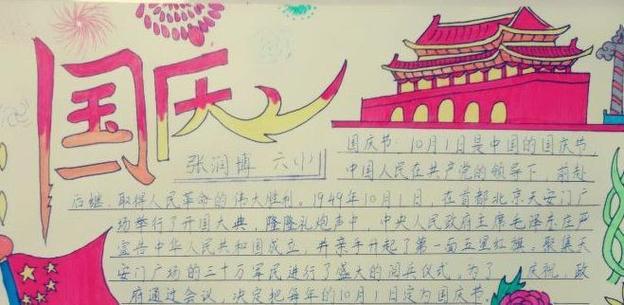 国庆
张润博 六(1)
国庆节:10月1日是中国的国庆节,
中国人民在共产党的领导下,前赴
后继,取得人民革命的伟大胜利。1949年10月1日,在首都北京天安门广
场举行了开国大典,隆隆礼炮声中,中央人民政府主席毛泽东庄严
宣告中华人民共和国成立,并亲手升起了第一面五星红旗。聚集天
安门广场的三十万军民进行了盛大的阅兵仪式,为了 庆祝,政
府通过会议,决定把每年的10月1日定为国庆节